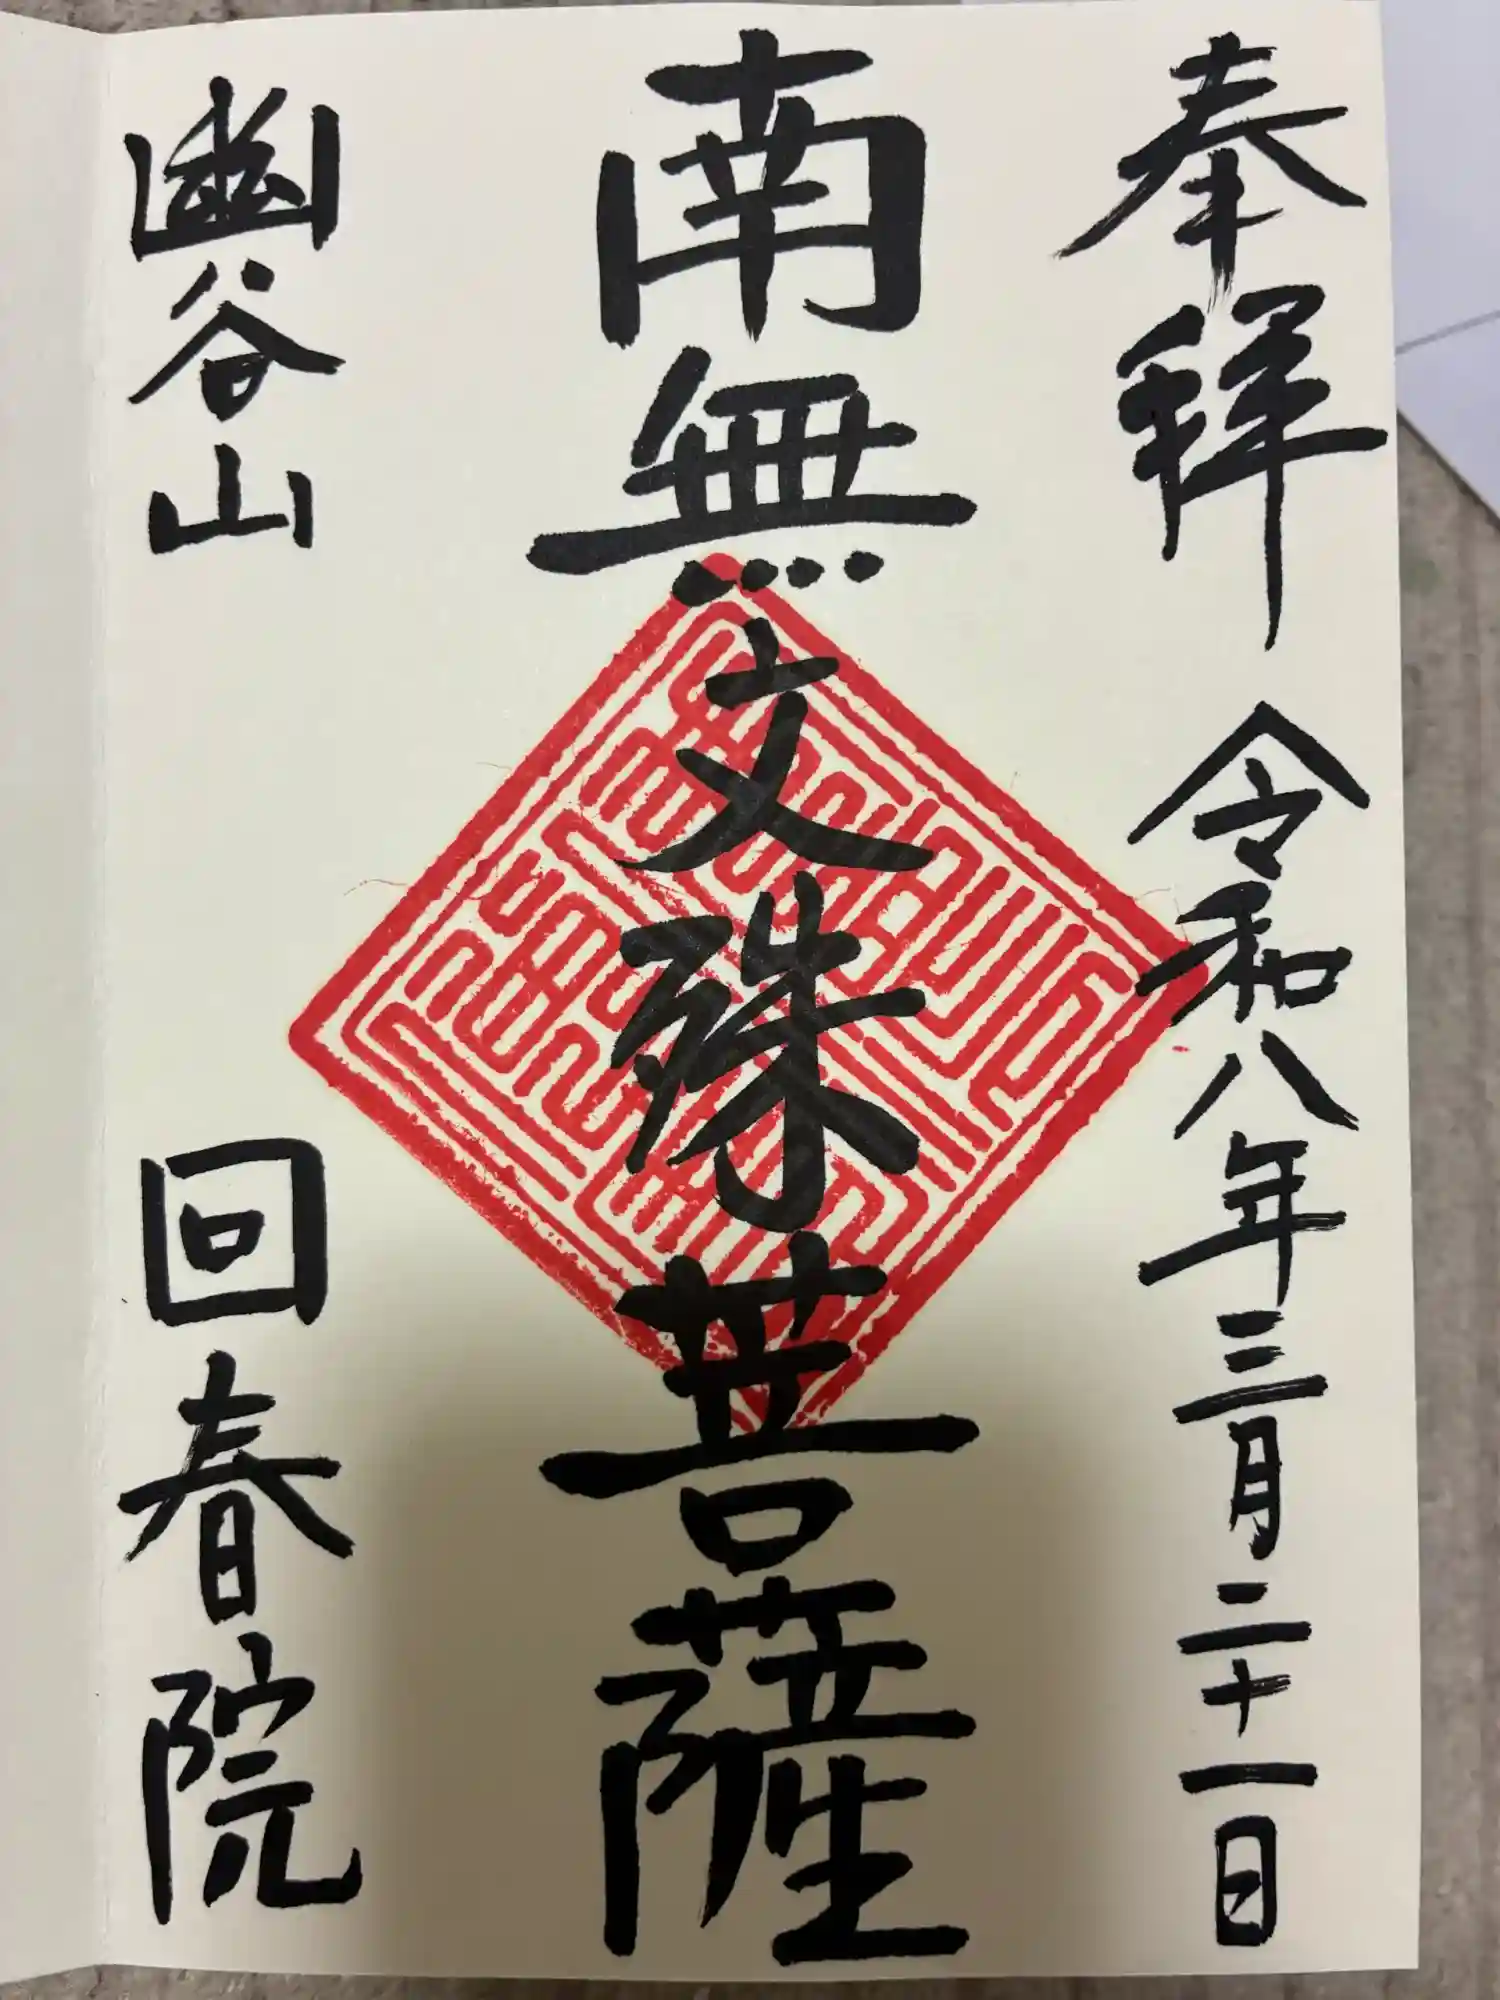 奉拜 令和八年三月二十一日
南無文殊菩薩
幽谷山 回春院